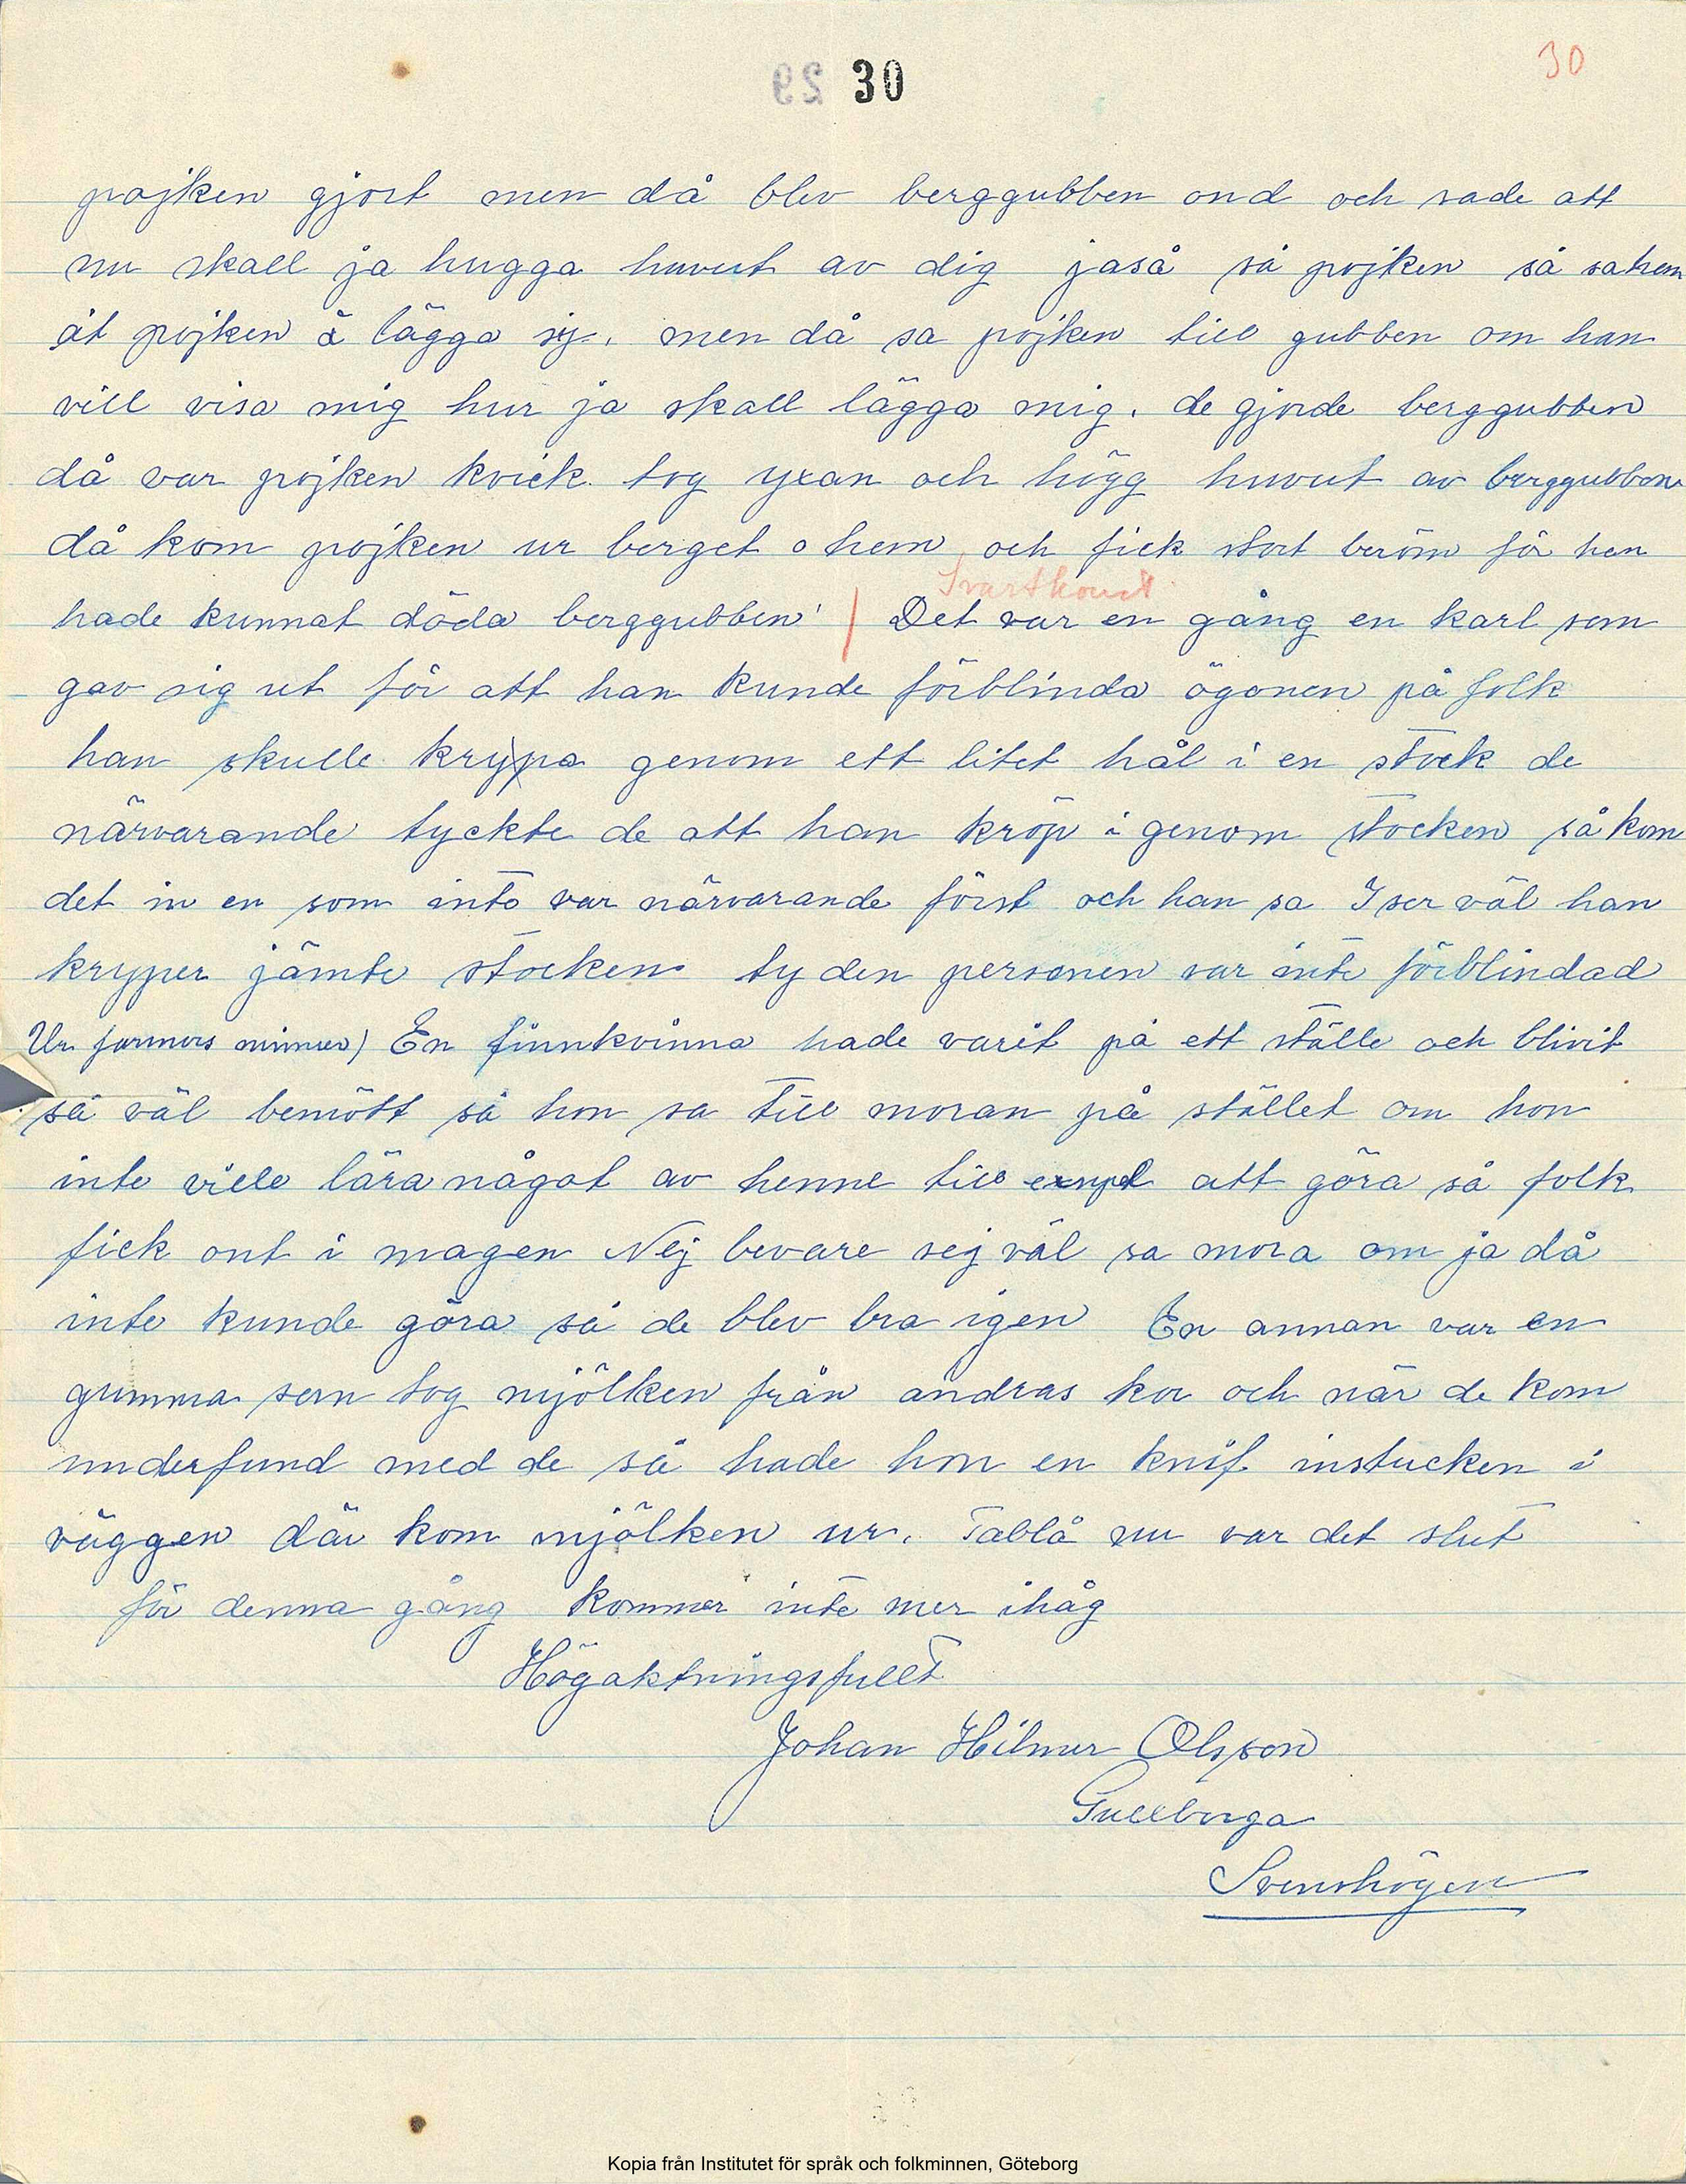 30
29 30
pojken gjort men då blev berggubben ond och sade att
nu skall ja hugga huvut av dig jaså så pojken så sa han
åt pojken å lägga sig. men då sa pojken till gubben om han
vill visa mig hur ja skall lägga mig. de gjorde berggubben
då var pojken kvick tog yxan och högg huvut av berggubben
då kom pojken ur berget o hem och fick stort beröm för han
Svartkonst
hade kunnat döda berggubben / Det var en gång en karl som
gav sig ut för att han kunde förblinda ögonen på folk
han skulle krypa genom ett litet hål i en stock de
närvarande tyckte de att han kröp i genom stocken så kom
det in en som inte var närvarande först och han sa I ser väl han
kryper jämte stocken ty den personen var inte förblindad
Ur farmors minnen) En finnkvinna hade varit på ett ställe och blivit
så väl bemött så hon sa till moran på stället om hon
inte ville lära något av henne till exmpel att göra så folk
fick ont i magen Nej bevare sej väl sa mora om ja då
inte kunde göra så de blev bra igen En annan var en
gumma som tog mjölken från andras kor och när de kom
underfund med de så hade hon en knif instucken i
väggen där kom mjölken ur. Tablå nu var det slut
för denna gång kommer inte mer ihåg
Högaktningsfullt
Johan Hilmer Olsson
Gullborga
Svenshögen
Kopia från Institutet för språk och folkminnen, Göteborg